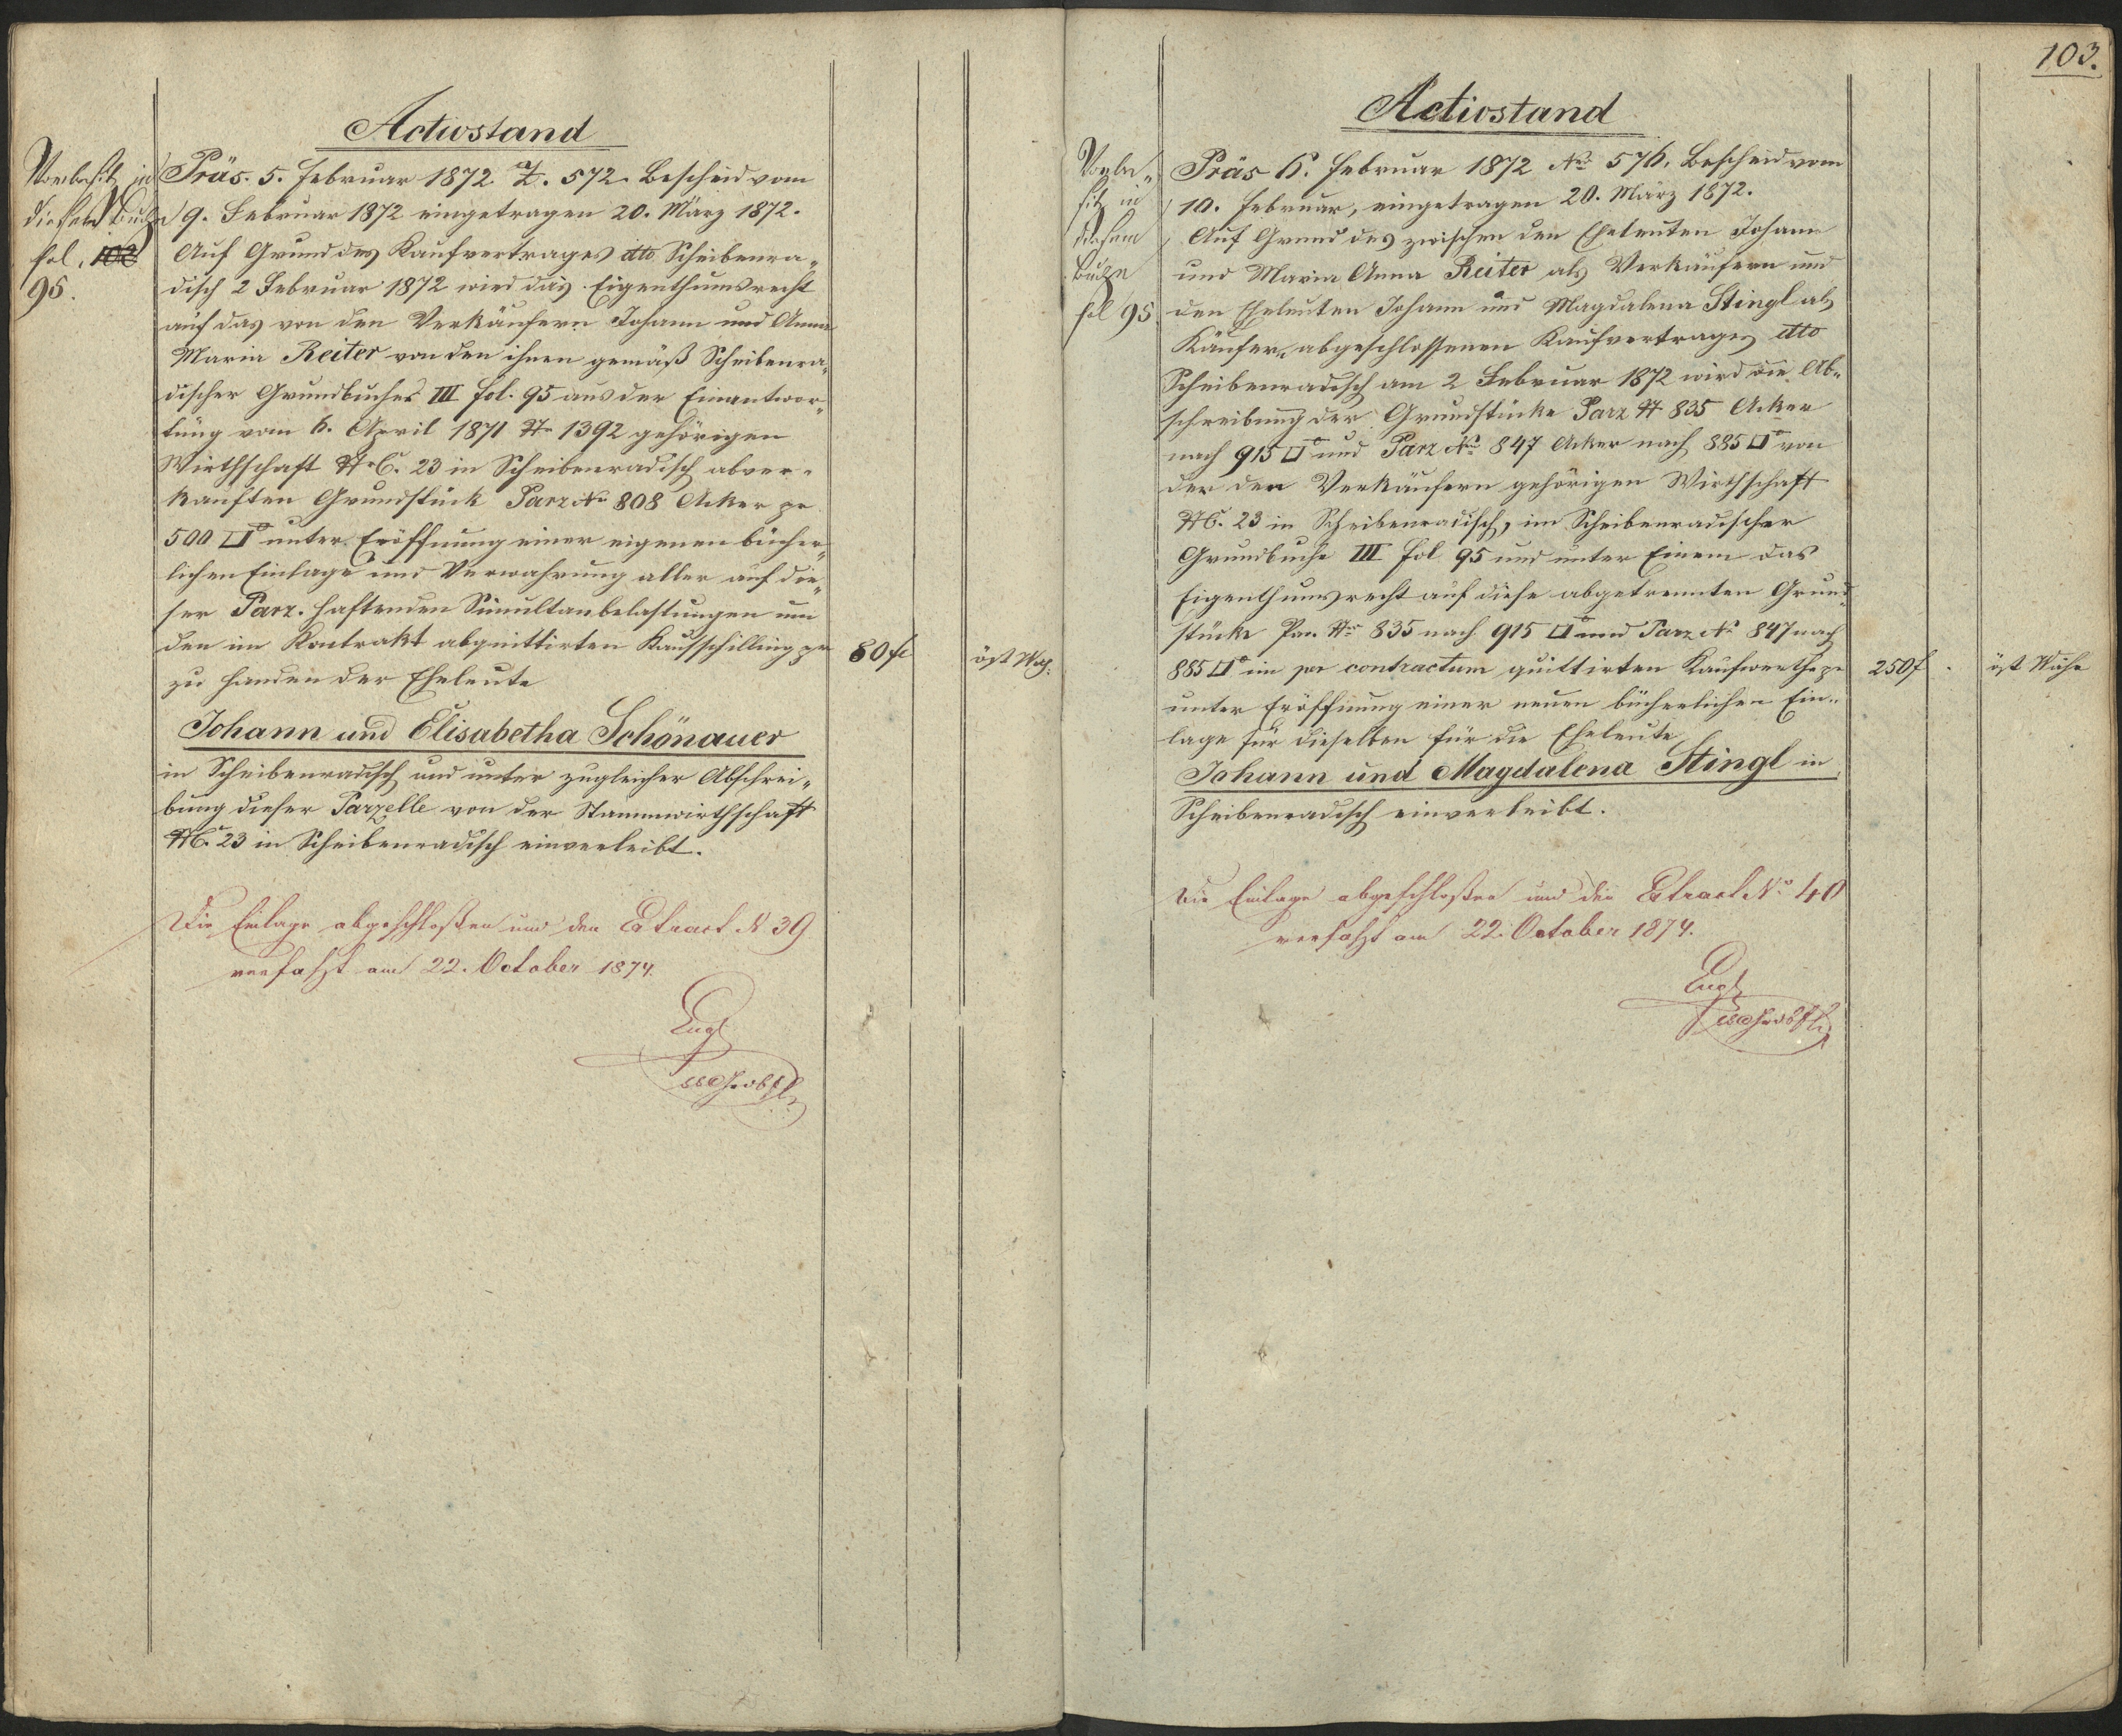 Activstand
Vorbesitz in
diesem Buche
fol. 102
95.
Präs. 5. Februar 1872 Z. 572. Bescheid vom
9. Februar 1872 eingetragen 20. März 1872.
Auf Grund des Kaufvertrages dto Scheibenra„
disch 2 Februar 1872 wird das Eigenthumsrecht
auf das von den Verkäufern Johann und Anna
Maria Reiter von den ihnen gemäß Scheibenra„
discher Grundbuches III fol. 95 aus der Einantwor„
tung vom 6. April 1871 Nr 1392 gehörigen
Wirthschaft NrC. 23 in Scheibenradisch abver„
kauften Grundstück Parz No 808 Acker pr
500 □° unter Eröffnung einer eigenen bücher„
lichen Einlage und Verwahrung aller auf die„
ser Parz. haftenden Simultanbelastungen um
den im Kontrakt abquittirten Kaufschilling pr 80 fl öst Wäh.
zu Handen der Eheleute
Johann und Elisabetha Schönauer
in Scheibenradisch und unter zugleicher Abschrei„
bung dieser Parzelle von der Stammwirthschaft
NC. 23 in Scheibenradisch einverleibt.
Die Einlage abgeschloßen und den Extract N 39
verfaßt am 22. October 1874.
103.
Activstand
Vorbe„
sitz in
diesem
Buche
fol 95.
Präs 6. Februar 1872 No 576. Bescheid vom
10. Februar, eingetragen 20. März 1872.
Auf Grund des zwischen den Eheleuten Johann
und Maria Anna Reiter als Verkäufern und
den Eheleuten Johann und Magdalena Stingl als
Käufern abgeschlossenen Kaufvertrages dto
Scheibenradisch am 2 Februar 1872 wird die Ab„
schreibung der Grundstücke Parz N 835 Acker
nach 915 □° und Parz No 847 Acker nach 885 □° von
der den Verkäufern gehörigen Wirthschaft
NC. 23 in Scheibenradisch, im Scheibenradischer
Grundbuche III fol 95 und unter Einem das
Eigenthumsrecht auf diese abgetrennten Grund„
stücke Par. Nr 835 nach 915 □° und Parz No 847 nach
885 □° im per contractum quittirten Kaufwerthe pr 250 f. öst Währ
unter Eröffnung einer neuen bücherlichen Ein„
lage für dieselben für die Eheleute
Johann und Magdalena Stingl in
Scheibenradisch einverleibt.
Die Einlage abgeschloßen und den Extract No 40
verfaßt am 22. October 1874.